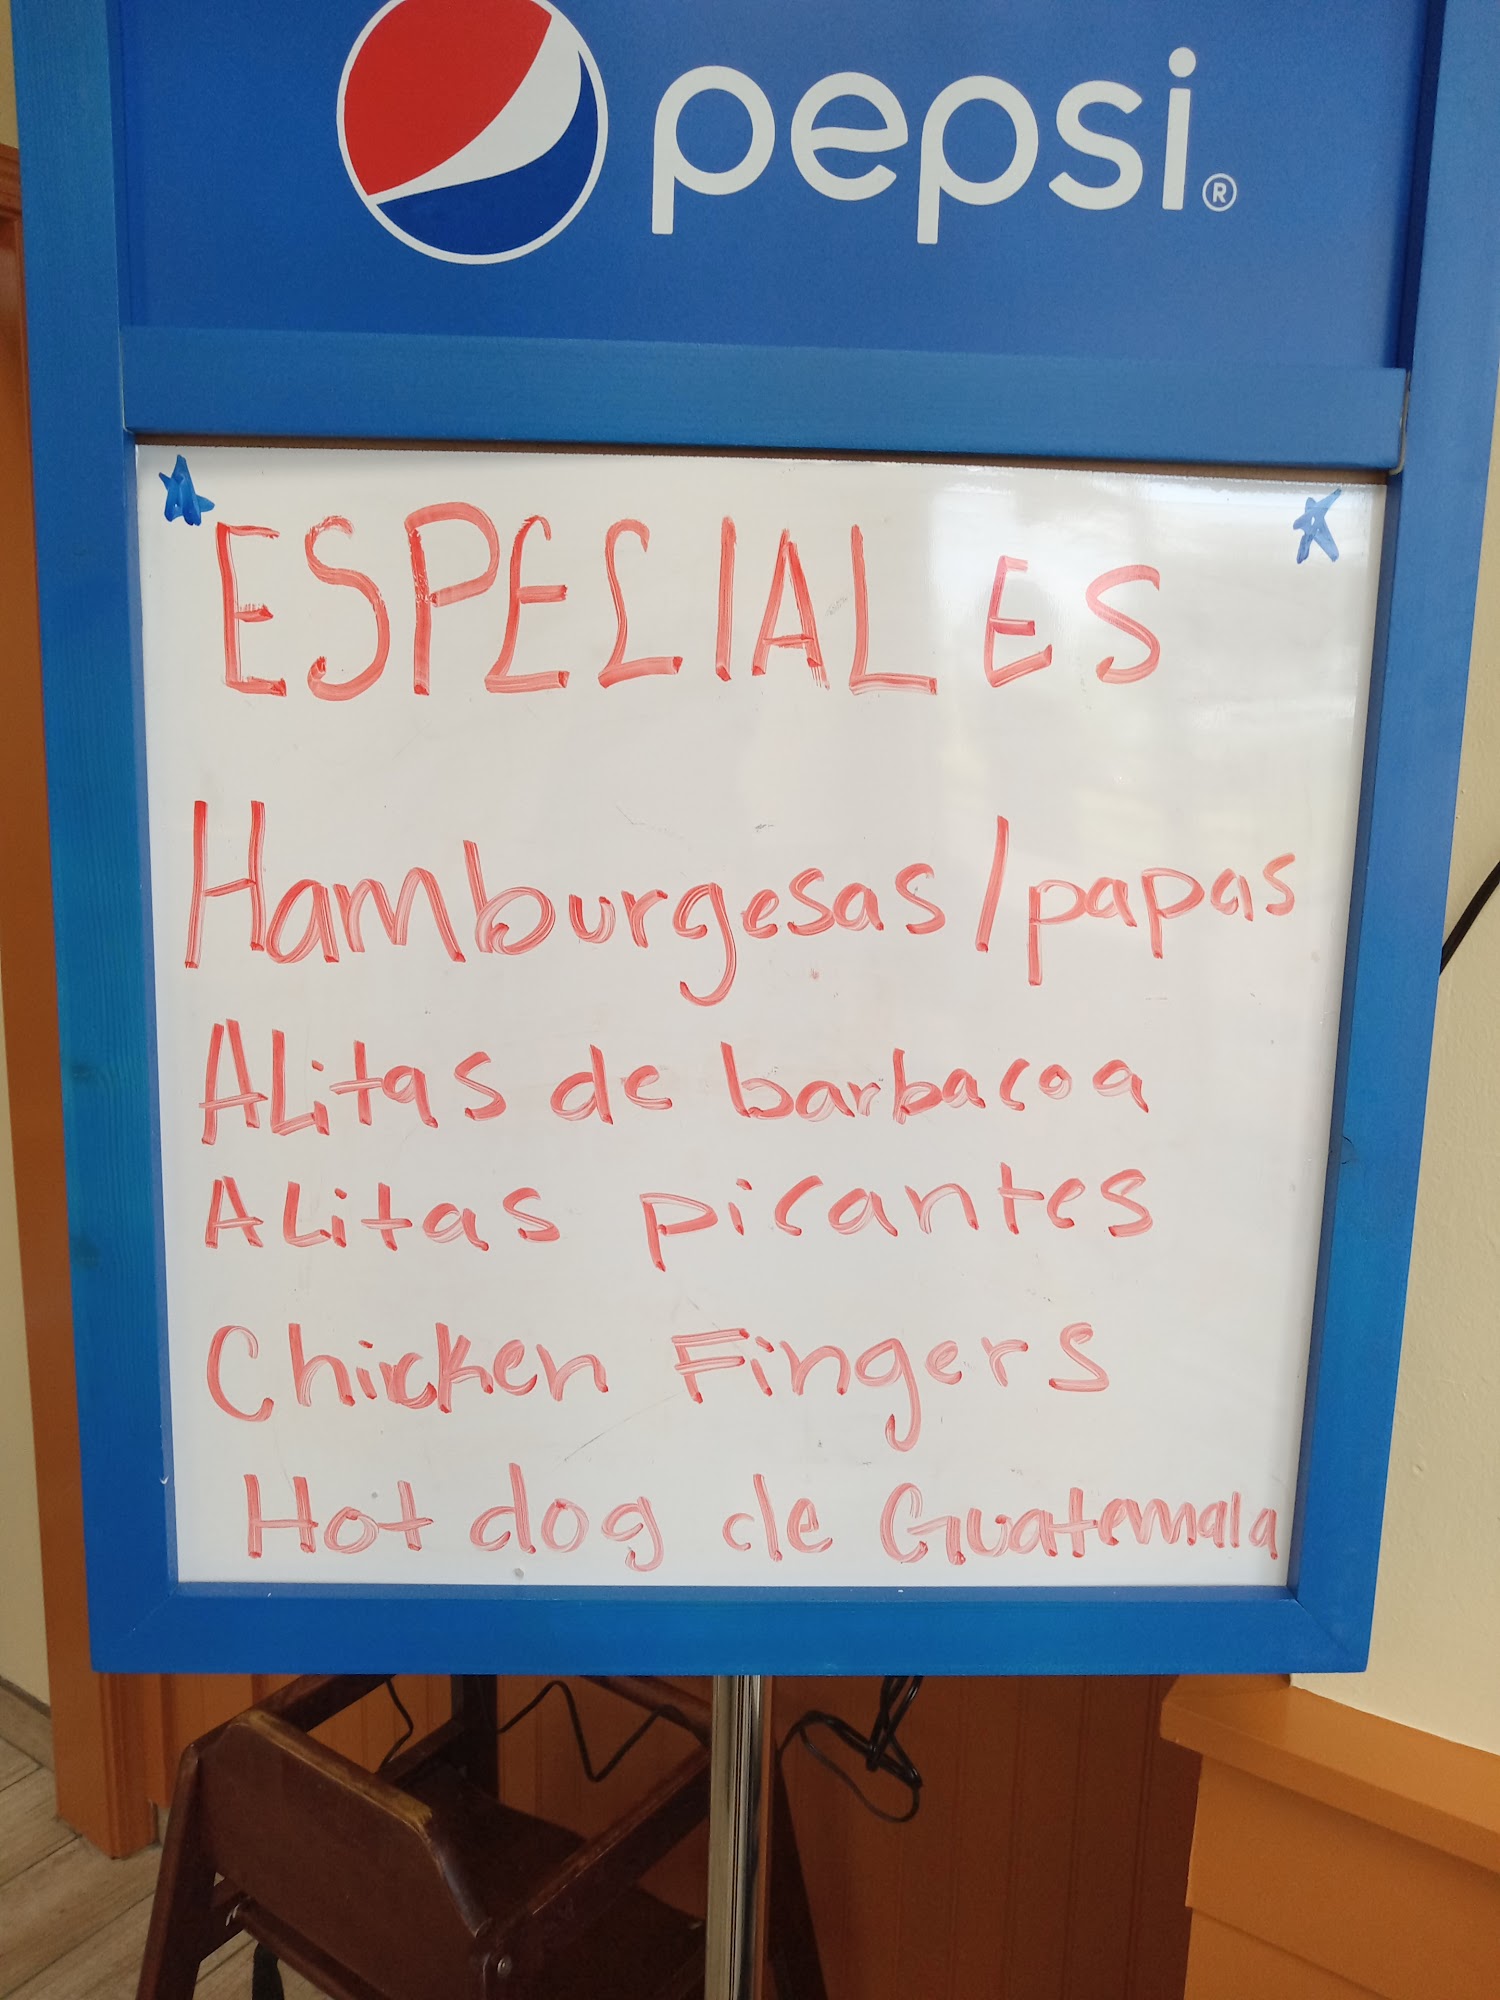 pepsi®
ESPECIALES
Hamburgesas/papas
Alitas de barbacoa
Alitas picantes
Chicken Fingers
Hot dog de Guatemala